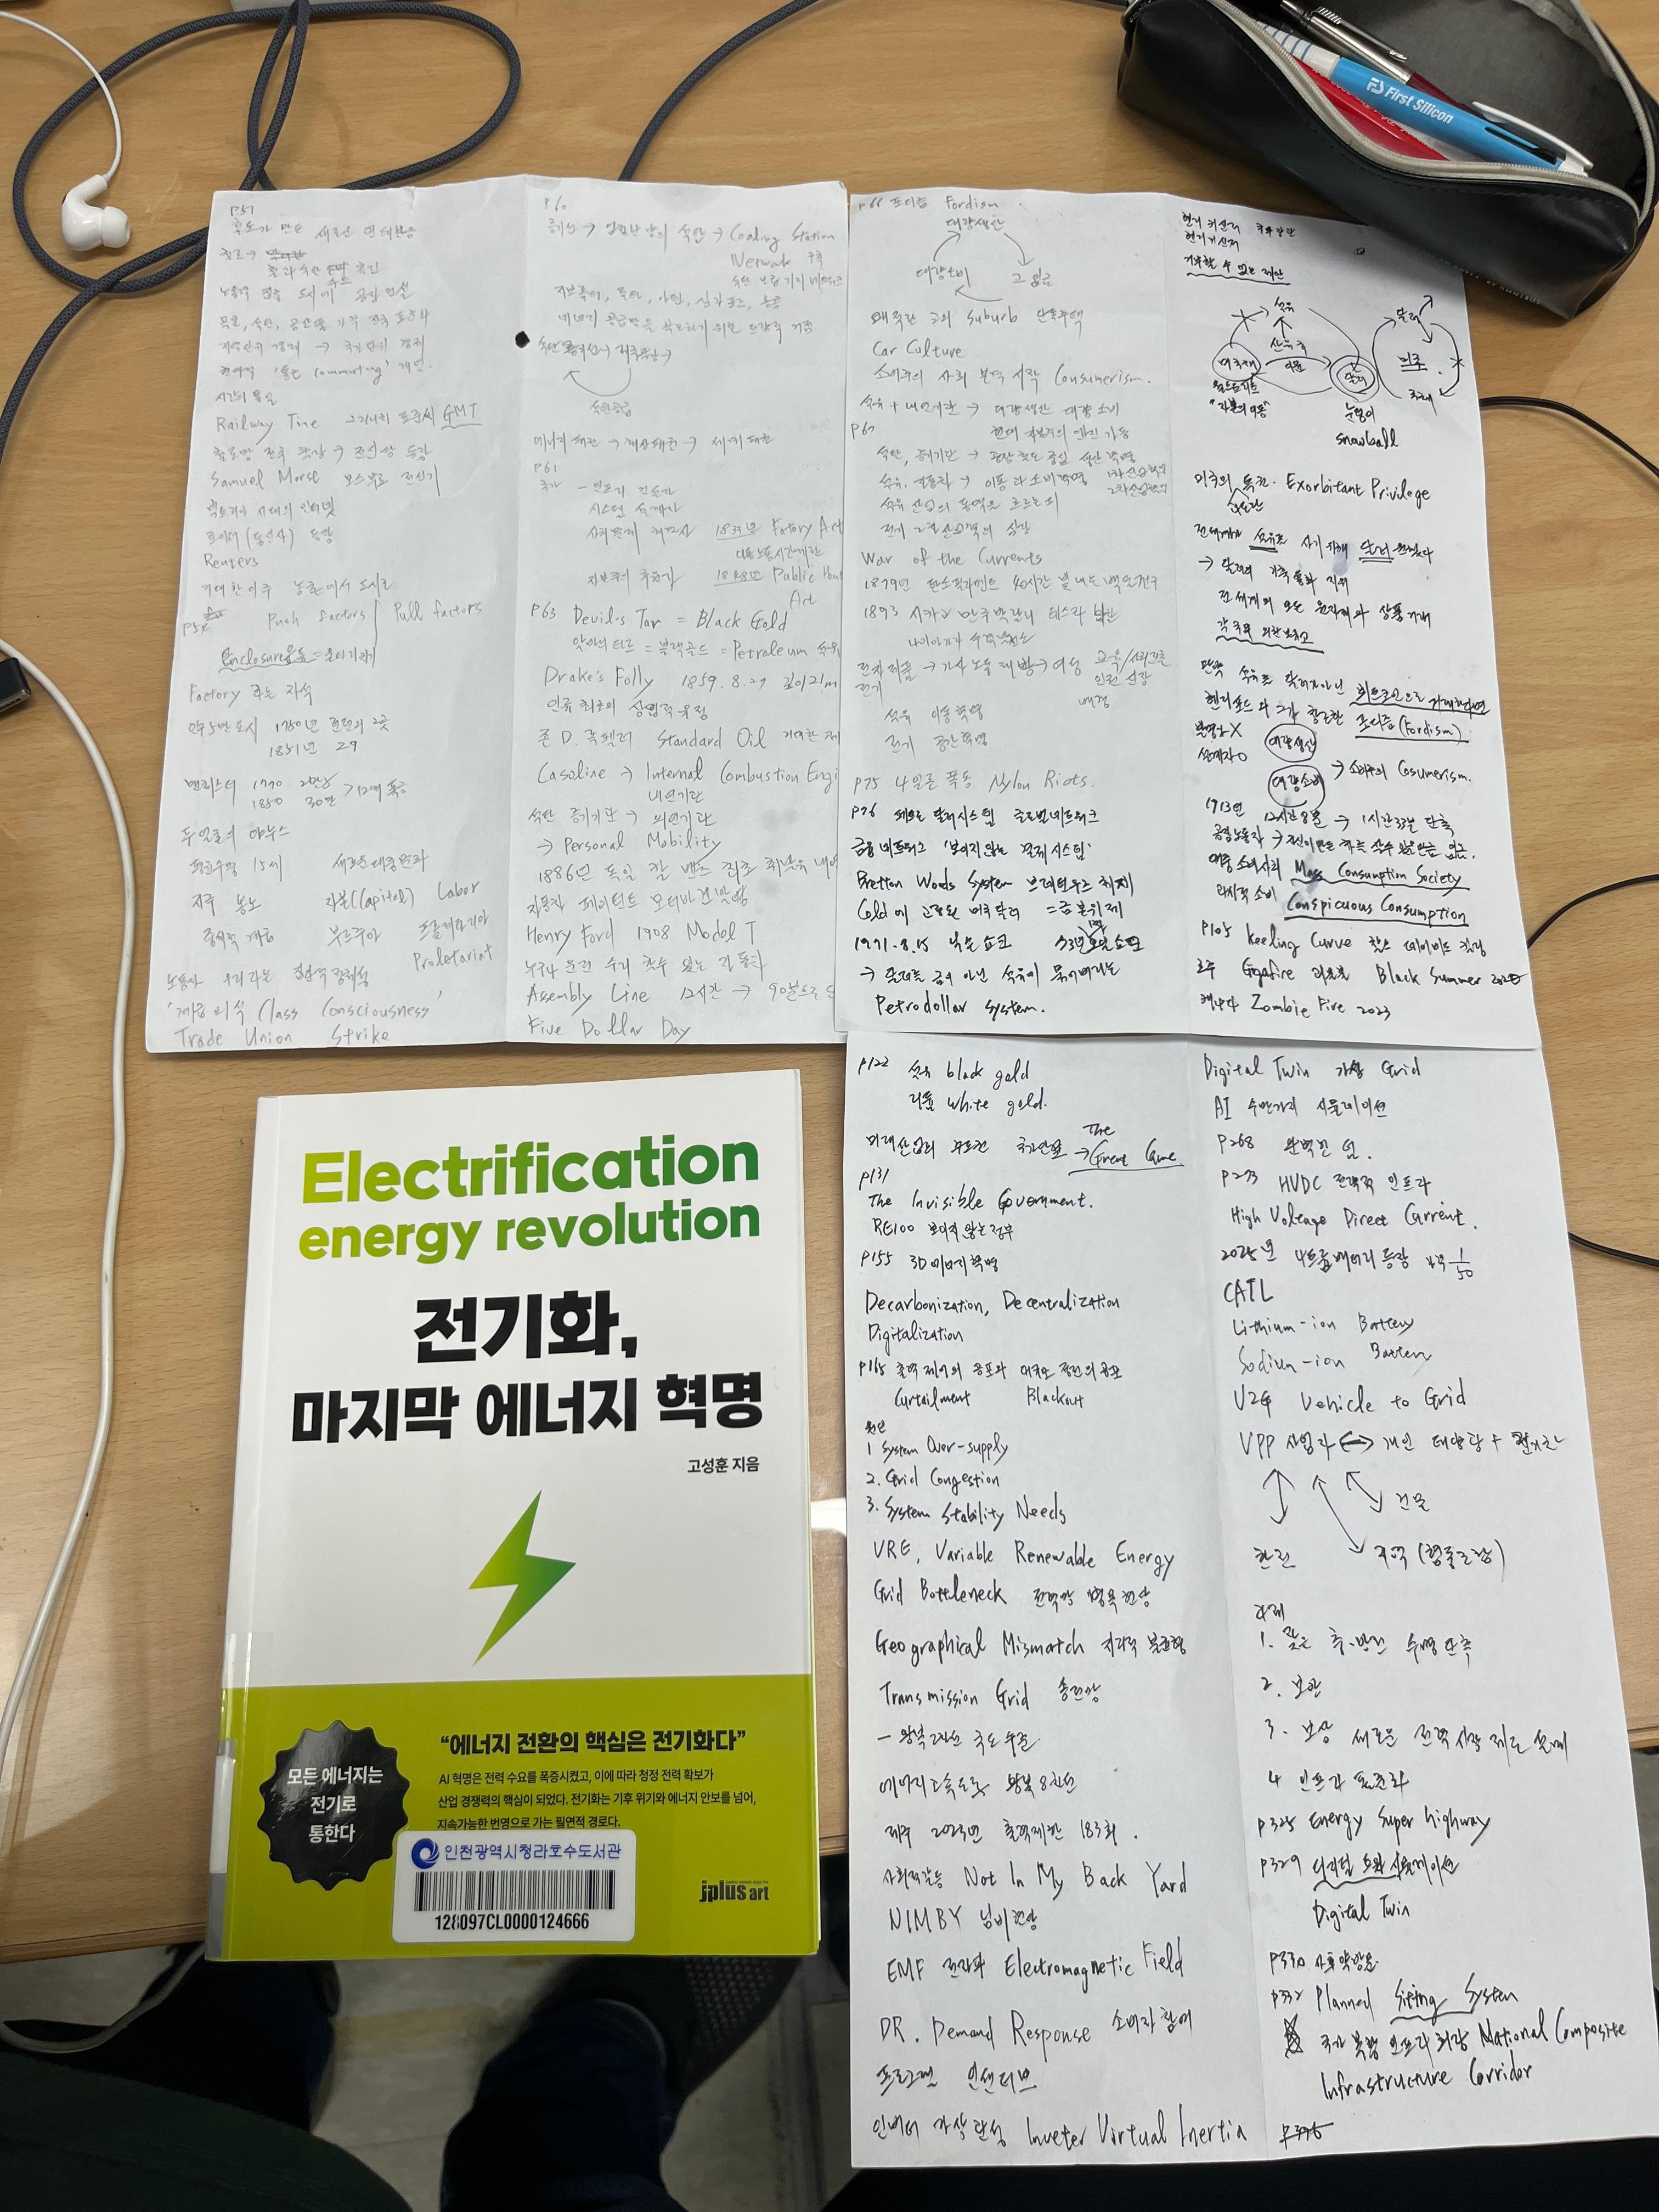 First Silicon
P57
철도가 만든 새로운
노동력 밀집 도시에 공장 건설
목화, 석탄, 공산품 가격 전국 표준화
지역단위 경제 → 국가단위 경제
현대적 '통근 Commuting' 개념.
시간의 통일
Railway Time 그리니치 표준시 GMT
철도망 전국 확장 → 전신망 등장
Samuel Morse 모스부호 전신기
빅토리아 시대의 인터넷
로이터(통신사) 등장
Reuters
거대한 이주 농촌에서 도시로
Push factors Pull factors
Enclosure운동 = 울타리치기
Factory
인구5만 도시 1750년 런던의 2곳
1851년 29
맨체스터 1770 2만5천
1850 30만 > 12배 폭증
두 얼굴의 야누스
평균수명 15세
지주 농노 자본(Capitol) Labor
중세적 계급 부르주아 프롤레타리아
Proletariat
노동자 우리라는 집단적 정체성
'계급의식 Class Consciousness'
Trade Union Strike
P60
Coaling Station
Network 구축
석탄 보급 기지 네트워크
지브롤터, 몰타, 아덴, 싱가포르, 홍콩
에너지 공급망을 확보하기 위한 전략적 거점
석탄공급
에너지 패권 → 해상패권 → 세계 패권
P61
국가 - 인프라 건설자
시스템 설계자
사회문제 해결사 1833년 Factory Act
아동노동시간제한
자본주의 후원자 1848년 Public Heal
Act
P63 Devil's Tar = Black Gold
악마의 타르 = 블랙골드 = Petroleum 석유
Drake's Folly 1859.8.27 깊이21m
인류 최초의 상업적 유정
존 D. 록펠러 Standard Oil 거대한 제
Gasoline → Internal Combustion Engi
내연기관
석탄 증기기관 → 외연기관
→ Personal Mobility
1886년 독일 칼 벤츠 최초 휘발유 내연
자동차 페이턴트 모터바겐 발명
Henry Ford 1908 Model T
누구나 운전 수리 할수 있는 자동차
Assembly Line 12시간 → 90분으로 단
Five Dollar Day
P66 포디즘 Fordism
대량생산
대량소비 고임금
Suburb 단독주택
Car Culture
소비주의 사회 본격 시작 Consumerism.
석유 + 내연기관 → 대량생산 대량소비
현대 자본주의 엔진 가동
P67
석탄, 증기기관 → 공장 철도 중심 생산혁명 1차산업혁명
석유, 자동차 → 이동과 소비혁명 2차산업혁명
석유 산업의 동맥을 흐르는 피
전기 2차산업혁명의 심장
War of the Currents
1879년 탄소필라멘트 40시간 빛내는 백열전구
1893 시카고 만국박람회 테슬라
나이아가라 수력발전소
전자제품 → 가사노동 해방 → 여성 교육/사회진출
전기 인권 신장
배경
석유 이동혁명
전기 공간혁명
P75 나일론 폭동 Nylon Riots.
P76 페트로 달러시스템 글로벌네트워크
금융 네트워크 '보이지 않는 결제 시스템'
Bretton Woods System 브레튼우즈 체제
Gold에 고정된 미국달러 = 금본위제
1971.8.15 닉슨 쇼크 73년 오일쇼크
→ 달러를 금이 아닌 석유에 묶어버리는
Petrodollar System.
헨리 키신저 국무장관
헨리키신저
거부할 수 없는 제안
석유
산유국
달러
미국채
"자본의 이동"
눈덩이
snowball
미국의 특권. Exorbitant Privilege
전세계가 석유를 사기 위해 달러 원한다
→ 달러의 기축통화 지위
전 세계의 모든 원자재와 상품거래
각국의 외환보유고
만약 석유를 달러가아닌 비트코인으로 거래한다면
헨리포드와 그가 창조한 포디즘(Fordism)
발명가 X
설계자 O
대량생산
대량소비 → 소비주의 Cosumerism.
1913년 12시간8분 → 1시간33분 단축
공장노동자 → 자신이 만든 차를 살수 있을만큼 임금.
대중 소비사회 Mass Consumption Society
과시적 소비 Conspicuous Consumption
P105 Keeling Curve 찰스 데이비드 킬링
호주 Gigafire 메가불 Black Summer 2020
캐나다 Zombie Fire 2023
P122 석유 black gold
리튬 white gold.
미래산업의 주도권 국가안보 → The Great Game
P131
The Invisible Government.
RE100 보이지 않는 정부
P155 3D에너지혁명
Decarbonization, Decentralization
Digitalization
P165 출력제어의 공포와 대규모 정전의 공포
Curtailment Blackout
원인
1 System Over-supply
2. Grid Congestion
3. System Stability Needs
VRE, Variable Renewable Energy
Grid Bottleneck 전력망 병목현상
Geographical Mismatch 지리적 불균형
Transmission Grid 송전망
- 왕복2차선 국도 수준
에너지고속도로 왕복 8차선
제주 2023년 출력제한 183회.
사회적갈등 Not In My Back Yard
NIMBY 님비현상
EMF 전자파 Electromagnetic Field
DR. Demand Response 소비자 참여
프로그램 인센티브
인버터 가상관성 Inveter Virtual Inertia
Digital Twin 가상 Grid
AI 수만가지 시뮬레이션
P268 완벽한 섬.
P273 HVDC 전략적 인프라
High Voltage Direct Current.
2025년 나트륨배터리 등장 가격 1/50
CATL
Lithium-ion Battery
Sodium-ion Battery
V2G Vehicle to Grid
VPP 사업자 ↔ 개인 태양광 + 전기차
건물
한전 지역 (협동조합)
과제
1. 잦은 충·방전 수명단축
2. 보안
3. 보상 새로운 전력시장 제도 설계
4 인프라 표준화
P325 Energy Super highway
P329 디지털 트윈 시뮬레이션
Digital Twin
P330 사후약방문
P332 Planned Siting System
국가 복합 인프라 회랑 National Composite
Infrastructure Corridor
Electrification
energy revolution
전기화,
마지막 에너지 혁명
고성훈 지음
모든 에너지는
전기로
통한다
“에너지 전환의 핵심은 전기화다”
AI 혁명은 전력 수요를 폭증시켰고, 이에 따라 청정 전력 확보가
산업 경쟁력의 핵심이 되었다. 전기화는 기후 위기와 에너지 안보를 넘어,
지속가능한 번영으로 가는 필연적 경로다.
인천광역시청라호수도서관
128097CL0000124666
jplus art